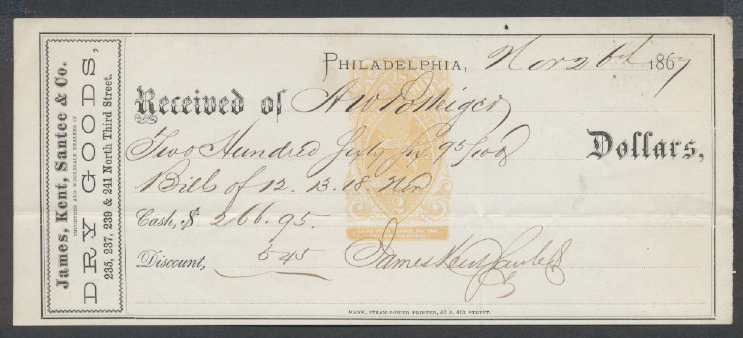 James, Kent, Santee & Co.
IMPORTERS AND WHOLESALE DEALERS IN
DRY GOODS,
235, 237, 239 & 241 North Third Street.
PHILADELPHIA, Nov 26th 1867
Received of A W Pottieger
Two Hundred Sixty Six 95/100 Dollars,
Bills of 12. 13. 18. Nov
Cash, $ 266.95.
Discount, 5 45 James Kent Santee & Co
MANN, STEAM-POWER PRINTER, 43 S. 4th STREET.